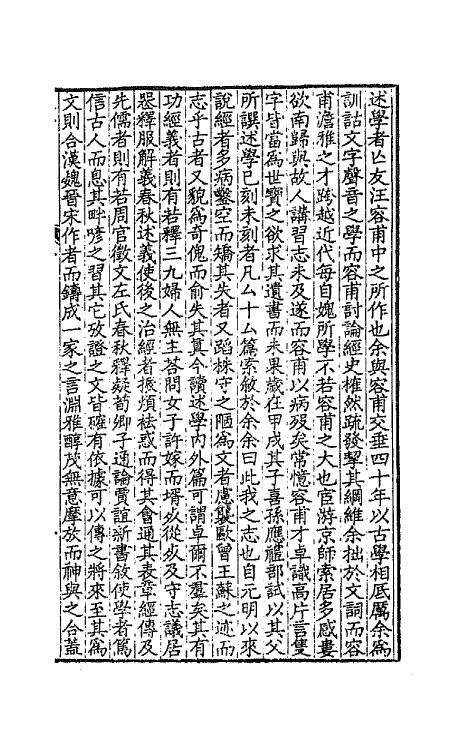 述學者亾友汪容甫中之所作也余與容甫交垂四十年以古學相底厲余為
訓詁文字聲音之學而容甫討論經史榷然疏發挈其綱維余拙於文詞而容
甫澹雅之才跨越近代每自媿所學不若容甫之大也宦游京師索居多感婁
欲南歸與故人講習志未及遂而容甫以病歿矣常憶容甫才卓識高片言隻
字皆當為世寶之欲求其遺書而未果歲在甲戌其子喜孫應禮部試以其父
所譔述學已刻未刻者凡厶十厶篇索敘於余余曰此我之志也自元明以來
說經者多病鑿空而矯其失者又蹈株守之陋為文者慮襲歐曾王蘇之迹而
志乎古者又貌為奇傀而俞失其真今讀述學內外篇可謂卓爾不羣矣其有
功經義者則有若釋三九婦人無主荅問女子許嫁而壻死從死及守志議居
器釋服解義春秋述義使後之治經者振煩祛惑而得其會通其表章經傳及
先儒者則有若周官徵文左氏春秋釋疑荀卿子通論賈誼新書敘使學者篤
信古人而息其畔喭之習其它攷證之文皆確有依據可以傳之將來至其為
文則合漢媿晉宋作者而鑄成一家之言淵雅醇茂無意摩放而神與之合蓋